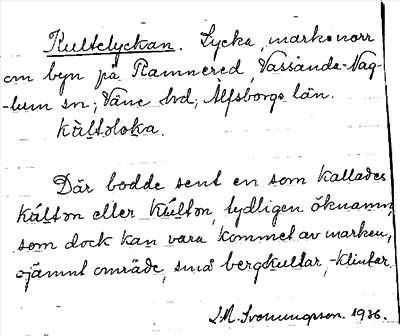 Kultelyckan. Lycka, mark norr
om byn på Ramnered, Vassända-Nag-
-lum sn; Väne hd; Älfsborgs län.
kàltəloka.
Där bodde sent en som kallades
káltən eller kúltən, tydligen öknamn,
som dock kan vara kommet av marken,
ojämnt område, små bergkullar, -klintar.
J.M. Svenungsson. 1936.